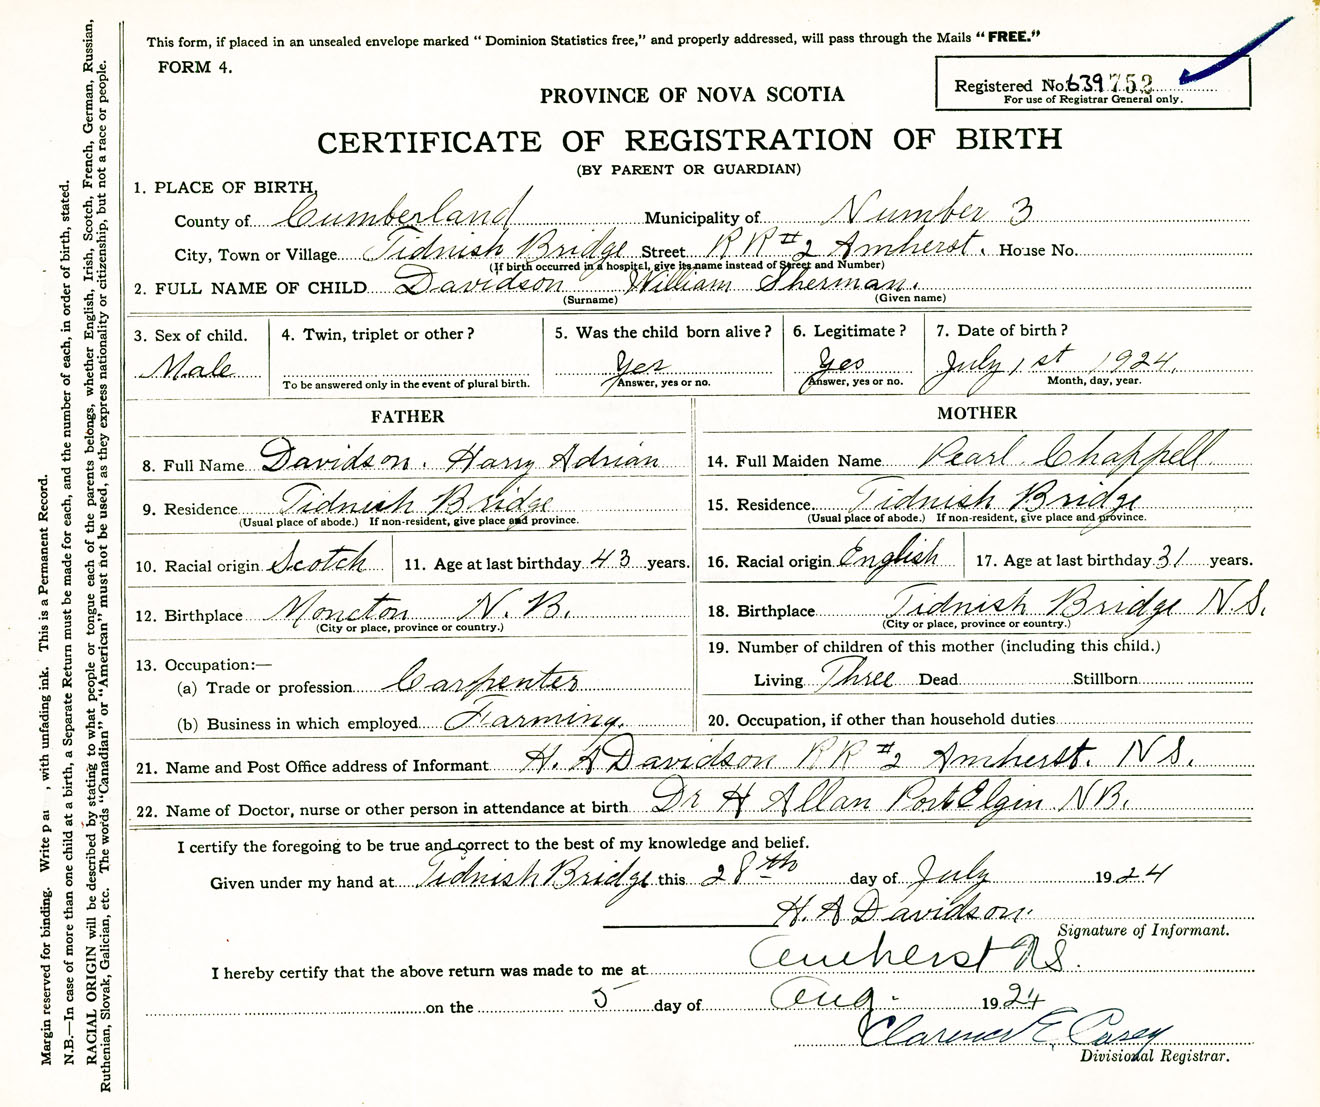 This form, if placed in an unsealed envelope marked " Dominion Statistics free," and properly addressed, will pass through the Mails "FREE."
FORM 4.
Registered No. 639752
For use of Registrar General only.
PROVINCE OF NOVA SCOTIA
CERTIFICATE OF REGISTRATION OF BIRTH
(BY PARENT OR GUARDIAN)
1. PLACE OF BIRTH,
County of Cumberland Municipality of Number 3
City, Town or Village Tidnish Bridge Street RR #2 Amherst. House No.
(If birth occurred in a hospital, give its name instead of Street and Number)
2. FULL NAME OF CHILD Davidson William Sherman.
(Surname) (Given name)
3. Sex of child. 4. Twin, triplet or other? 5. Was the child born alive? 6. Legitimate? 7. Date of birth?
Male Yes Yes July 1st 1924.
To be answered only in the event of plural birth. Answer, yes or no. Answer, yes or no. Month, day, year.
FATHER MOTHER
8. Full Name Davidson. Harry Adrian 14. Full Maiden Name Pearl Chappell
9. Residence Tidnish Bridge 15. Residence Tidnish Bridge
(Usual place of abode.) If non-resident, give place and province. (Usual place of abode.) If non-resident, give place and province.
10. Racial origin Scotch 11. Age at last birthday 43 years. 16. Racial origin English 17. Age at last birthday 31 years.
12. Birthplace Moncton N. B. 18. Birthplace Tidnish Bridge N.S.
(City or place, province or country.) (City or place, province or country.)
13. Occupation:— 19. Number of children of this mother (including this child.)
(a) Trade or profession Carpenter Living Three Dead Stillborn
(b) Business in which employed Farming. 20. Occupation, if other than household duties
21. Name and Post Office address of Informant H. A Davidson RR #2 Amherst. NS.
22. Name of Doctor, nurse or other person in attendance at birth Dr H Allan Port Elgin NB.
I certify the foregoing to be true and correct to the best of my knowledge and belief.
Given under my hand at Tidnish Bridge this 28th day of July 1924
H. A Davidson.
Signature of Informant.
I hereby certify that the above return was made to me at Amherst NS.
on the 5 day of Aug. 1924
Clarence E. Casey
Divisional Registrar.
Margin reserved for binding. Write , with unfading ink. This is a Permanent Record.
N.B.—In case of more than one child at a birth, a Separate Return must be made for each, and the number of each, in order of birth, stated.
RACIAL ORIGIN will be described by stating to what people or tongue each of the parents belongs, whether English, Irish, Scotch, French, German, Russian,
Ruthenian, Slovak, Galician, etc. The words "Canadian" or "American" must not be used, as they express nationality or citizenship, but not a race or people.